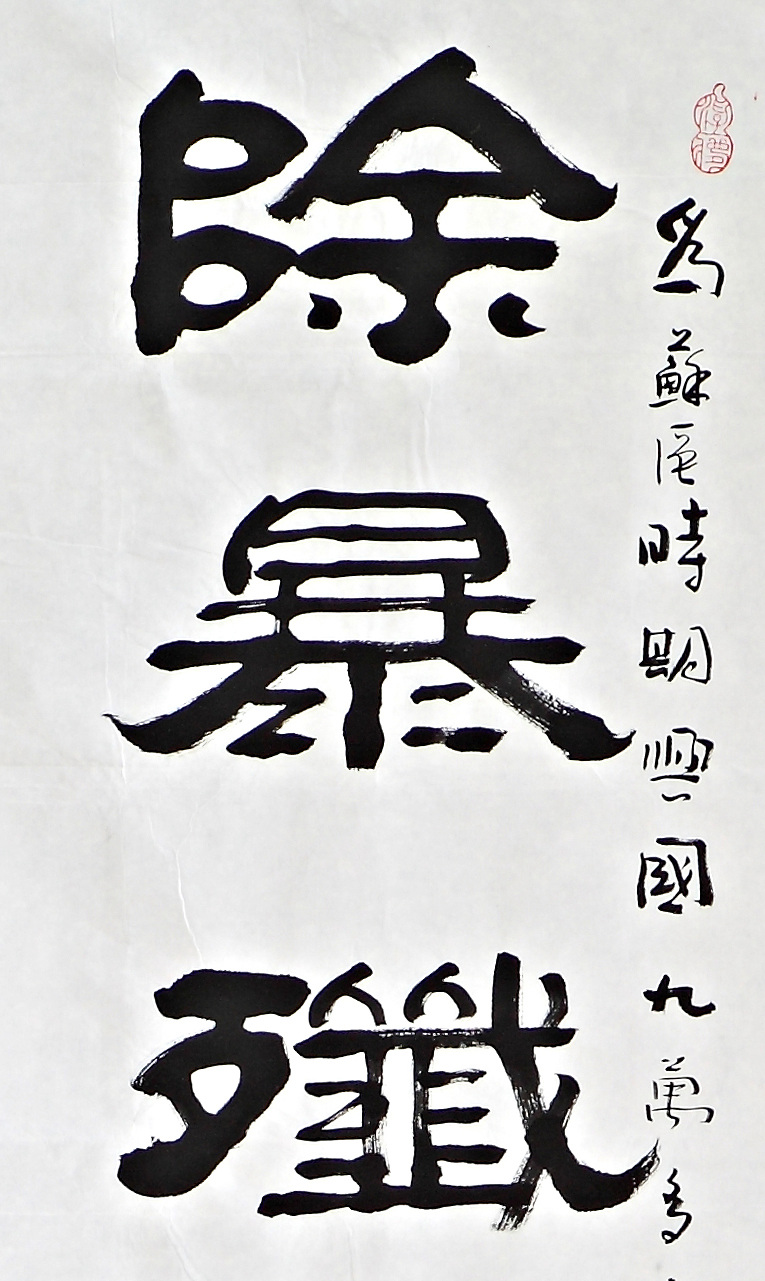 為蘇區時期興國九萬多
除暴殲